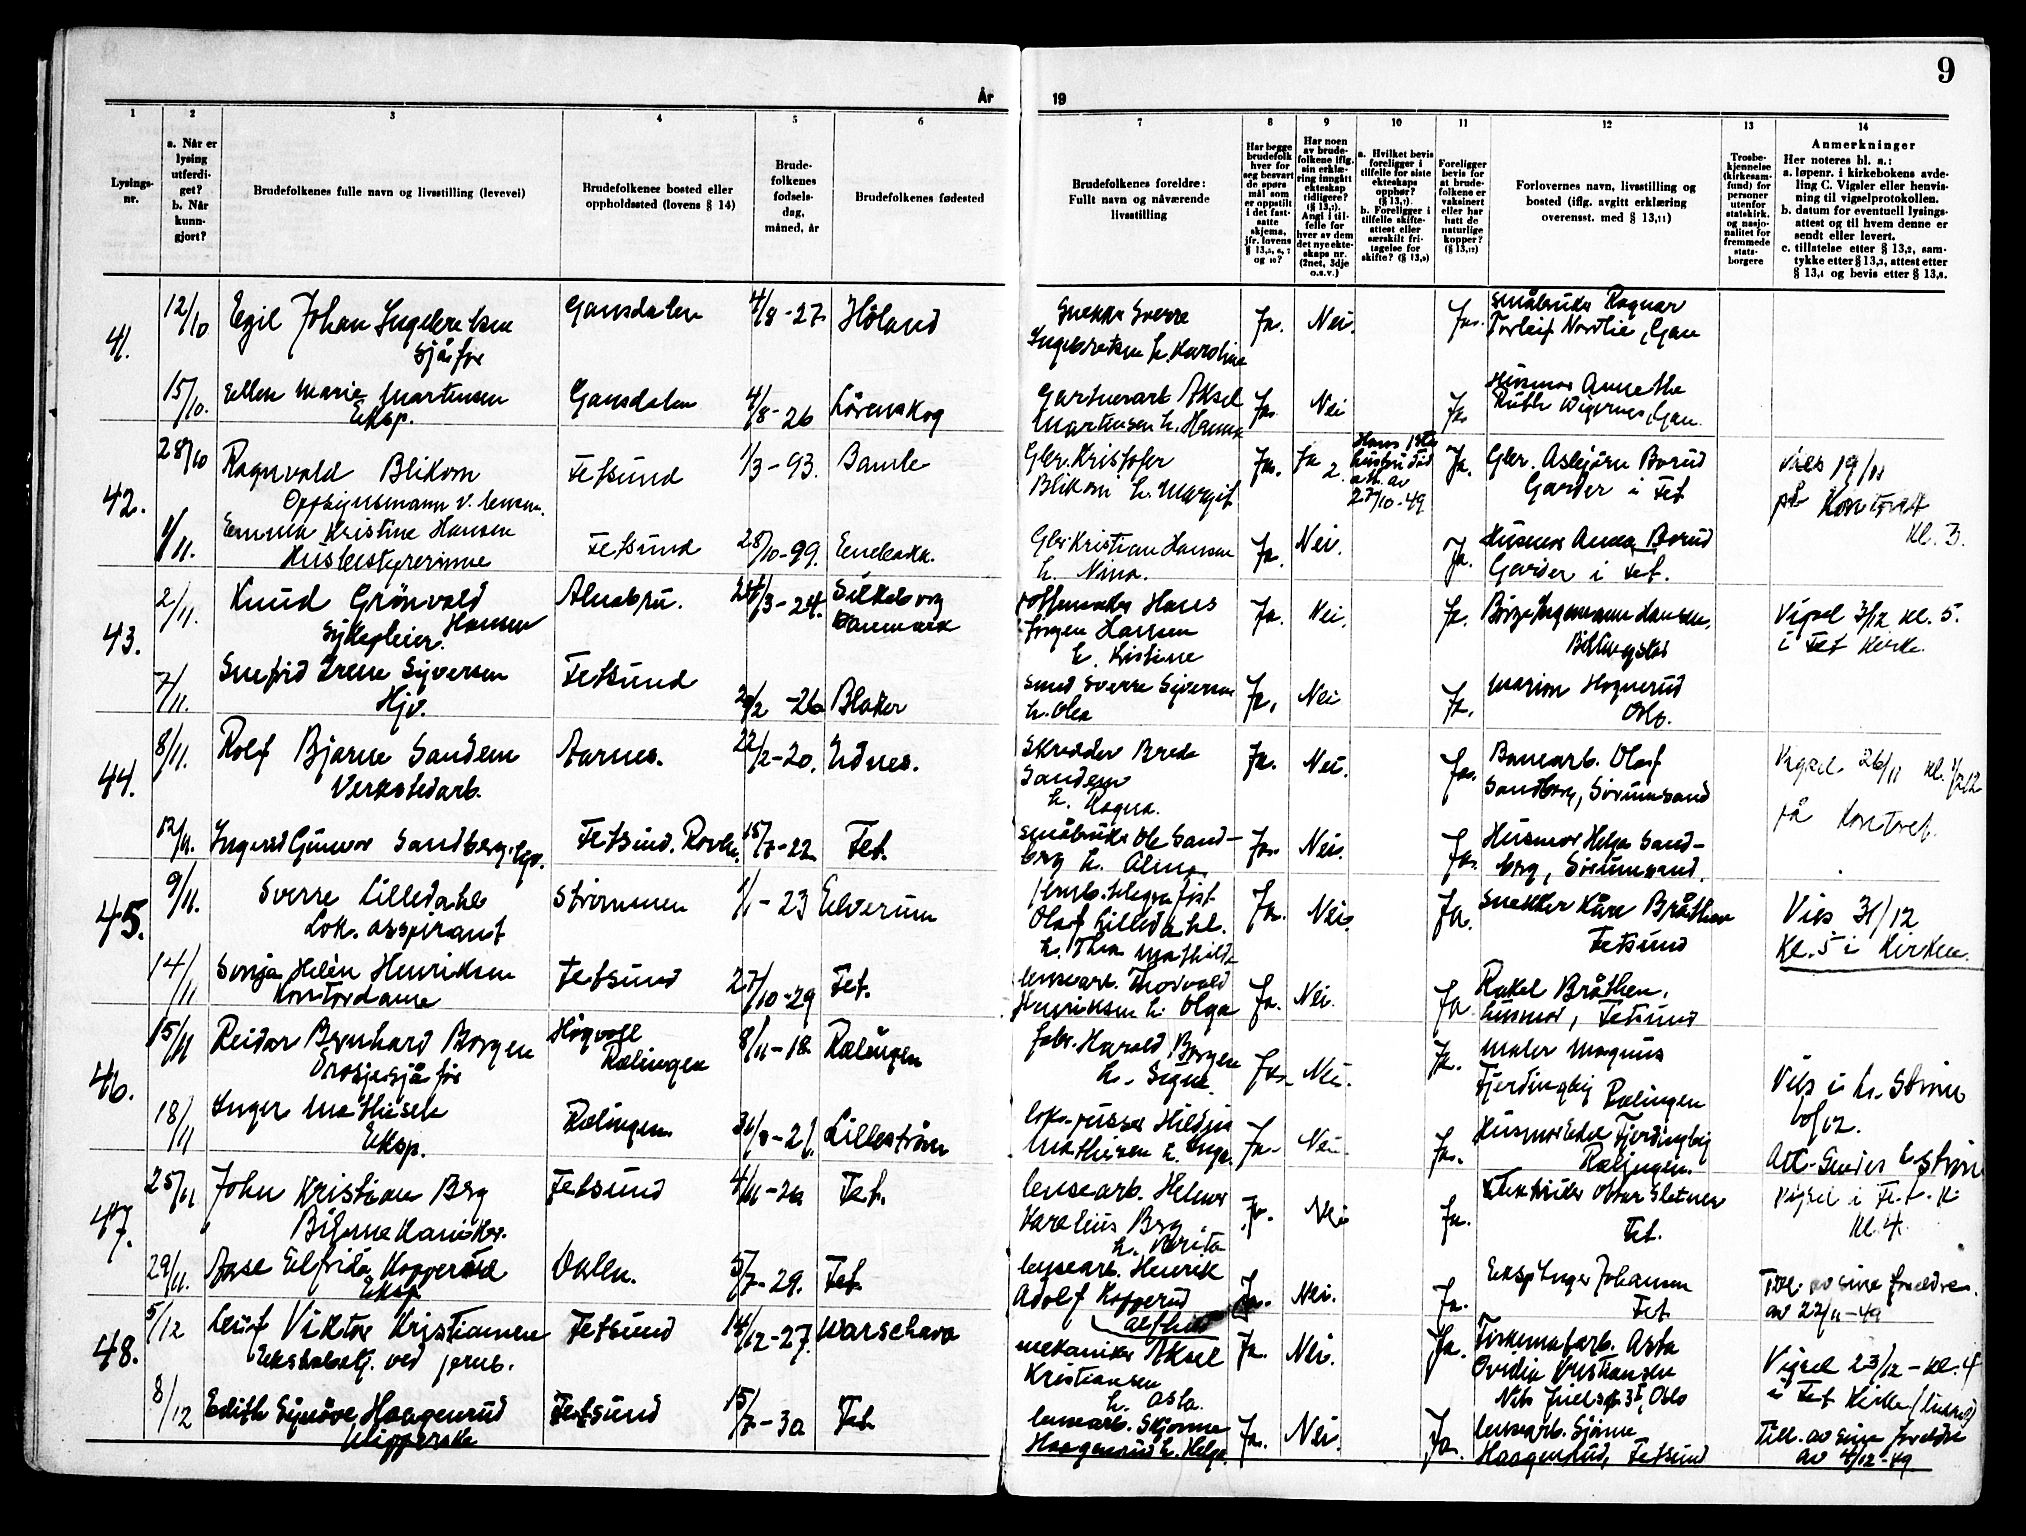 9
År
19
1
2
3
4
5
6
7
8
9
10
11
12
13
14
Lysings-
nr.
a. Når er
lysing
utferdi-
get?
b. Når
kunn-
gjort?
Brudefolkenes fulle navn og livsstilling (levevei)
Brudefolkenes bosted eller
oppholdssted (lovens § 14)
Brude-
folkenes
fødsels-
dag,
måned, år
Brudefolkenes fødested
Brudefolkenes foreldre:
Fullt navn og nåværende
livsstilling
Har begge
brudefolk
hver for
seg besvart
de spørs
mål som
er oppstilt
i det fast-
satte
skjema,
jfr. lovens
Har noen
av brude-
folkene iflg.
sin erklæ-
ring inngått
ekteskap
tidligere?
Angi i til-
felle for
hver av dem
det nye ekte-
skaps nr.
(2net, 3dje
o.s.v.)
a. Hvilket bevis
foreligger i
tilfelle for siste
ekteskaps
opphør?
b. Foreligger i
tilfelle skifte-
attest eller
særskilt fri-
tagelse for
skifte?
Foreligger
bevis for
at brude-
folkene er
vaksinert
eller har
hatt de
naturlige
kopper?
Forlovernes navn, livsstilling og
bosted (iflg. avgitt erklæring
overensst. med § 13,11)
Trosbe-
kjennelse
(kirkesam-
fund) for
personer
utenfor
statskirk.
og nasjo-
nalitet for
fremmede
stats-
borgere
Anmerkninger
Her noteres bl. a.:
a. løpenr. i kirkebokens avde-
ling C. Vigsler eller henvis-
ning til vigselprotokollen.
b. datum for eventuell lysings-
attest og til hvem denne er
sendt eller levert.
c. tillatelse etter § 13,2, sam-
tykke etter § 13,3, attest etter
§ 13,4 og bevis etter § 13,8.
41. 12/10 Egil Johan Ingebretsen Gansdalen 4/8-27 Höland Snekker Sverre Ja. Nei. Ja. Småbruker Ragnar
Sjåför Ingebretsen h. Karoline Torleif Nordlie, Gan
15/10. Ellen Marie Martinsen Gansdalen 4/8-26 Lörenskog Gartnerarb Aksel Ja. Nei Ja Husmor Annethe
Eksp. Martinsen h. Hanna Ruth Wigernes, Gan.
42. 28/10 Ragnvald Blikom Fetsund 1/3-93. Bamle Gbr. Kristofer Ja. Ja 2. Hans 1ste Ja. Gbr. Asbjörn Borud Vies 19/11
Oppsynsmann v. lensen. Blikom h. Margit. hustru död Garder i Fet på Kontoret
27/10-49 kl. 3.
1/11. Emma Kristine Hansen Fetsund 28/10-99. Enebakk. Gbr Kristian Hansen Ja. Nei. Ja. Husmor Anna Borud
Husbestyrerinne h. Nina. Garder i Fet.
43. 2/11. Knud Grönvald Alnabru. 24/3-24. Silkeborg Hans Ja. Nei. Ja. Börge Ingemann Hansen, Vigsel 3/12 kl. 5.
Hansen Danmark Jörgen Hansen Billingstad i Fet Kirke.
Sykepleier. h. Kristine
7/11. Snefrid Irene Syversen Fetsund 20/2-26 Blaker Smed Sverre Syversen Ja. Nei Ja. Marion Hognerud
Hjv. h. Olea Oslo.
44. 8/11. Rolf Bjarne Sandem Aarnes. 22/2-20. Udnes. Skredder Brede Ja. Nei. Ja. Banearb. Olaf Vigsel 26/11 kl. 1/2 12
Verkstedarb. Sandem Sandberg, Sörumsand på Kontoret.
h. Ragna.
12/11. Ingerd Gunvor Sandberg. Hjv. Fetsund. 15/7-22 Fet. Småbruker Ole Sand- Ja. Nei. Ja. Husmor Helga Sand-
berg h. Alma berg, Sörumsand.
45. 9/11. Sverre Lilledahl Strömmen 1/1-23 Elverum Jernb. telegrafist Ja. Nei. Ja. Snekker Kåre Bråthen Vies 31/12
Lok. aspirant Olaf Lilledahl. Fetsund Kl. 5 i kirken.
h. Thea Mathilde
14/11 Sonja Helén Henriksen Fetsund 27/10-29 Fet. lensearb. Thorvald Ja. Nei. Ja. Rakel Bråthen,
Kontordame Henriksen h. Olga husmor, Fetsund
46. 15/11 Reidar Bernhard Borgen Rælingen 8/11-18 Rælingen fabr. Harald Borgen Ja. Nei. Ja. Maler Magnus Vies i L.ström
Drosjesjåför h. Signe. Fjerdingby 10/12.
Rælingen
18/11 Inger Mathisen Rælingen. 31/8-21. Lilleström lok.-pusser Ja. Nei Ja. Husmor Fjerdingby
Eksp. Mathisen h. Inga. Rælingen.
47. 25/11 John Kristian Berg Fetsund 4/11-26 Fet. lensearb. Helmer Ja. Nei Ja. Elektriker Fet. Vigsel i Fet. K
Bilmekaniker. Karelius Berg Kl. 4.
29/11. Aase Elfrida Kopperud Dalen. 5/7-29. Fet. lensearb. Henrik Ja. Nei. Ja. Eksp Inger Johansen Till. av sine foreldre.
Eksp. Adolf Kopperud Fet. av 22/11-49
48. 5/12 Leif Viktor Kristiansen Fetsund 14/12-27. Warschava mekaniker Aksel Ja. Nei. Ja. Asta Vigsel 23/12 - kl. 4
ved jernb. Kristiansen Kristiansen i Fet Kirke
h. Asta. Nils Juels gt 31, Oslo
8/12 Edith Synöve Haagenrud Fetsund 15/7-30 Fet lensearb. Ja. Nei. Ja. lensearb. Till. av sine foreldre
Haagenrud h. Helga Haagenrud, Fetsund av 4/12-49